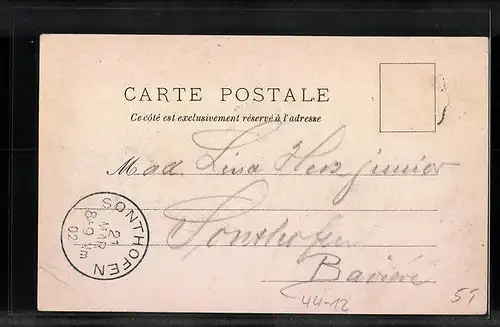 CARTE POSTALE
Ce côté est exclusivement réservé à l'adresse
Mad. Lina Herz junior
Sonthofen
Bavière
SONTHOFEN
21
MAR
8-9 Nm
02
44-12
55